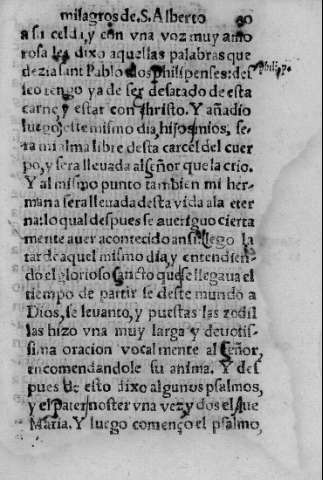 milagros de. S. Alberto 90
a su celda, y con vna voz muy amo
rosa les dixo aquellas palabras que
dezia sant Pablo a los philipenses: des
seo tengo ya de ser desatado de esta
carne, y estar con christo. Y añadio
luego, este mismo dia, hijos mios, se-
ra mi alma libre desta carcel del cuer
po, y sera lleuada al señor que la crio.
Y al mismo punto tambien mi her-
mana sera lleuada desta vida a la eter
na: lo qual despues se aueriguo cierta
mente auer acontecido ansi. llego la
tarde aquel mismo dia, y entendien-
do el glorioso sancto que se llegaua el
tiempo de partirse deste mundo a
Dios, se leuanto, y puestas las rodil
las hizo vna muy larga y deuotis-
sima oracion vocalmente al Señor,
encomendandole su anima. Y des
pues de esto dixo algunos psalmos,
y el Pater noster vna vez y dos el Aue
Maria. Y luego començo el psalmo,